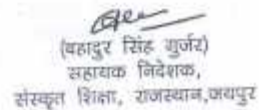 (बहादुर सिंह गुर्जर)
सहायक निदेशक,
संस्कृत शिक्षा, राजस्थान,जयपुर